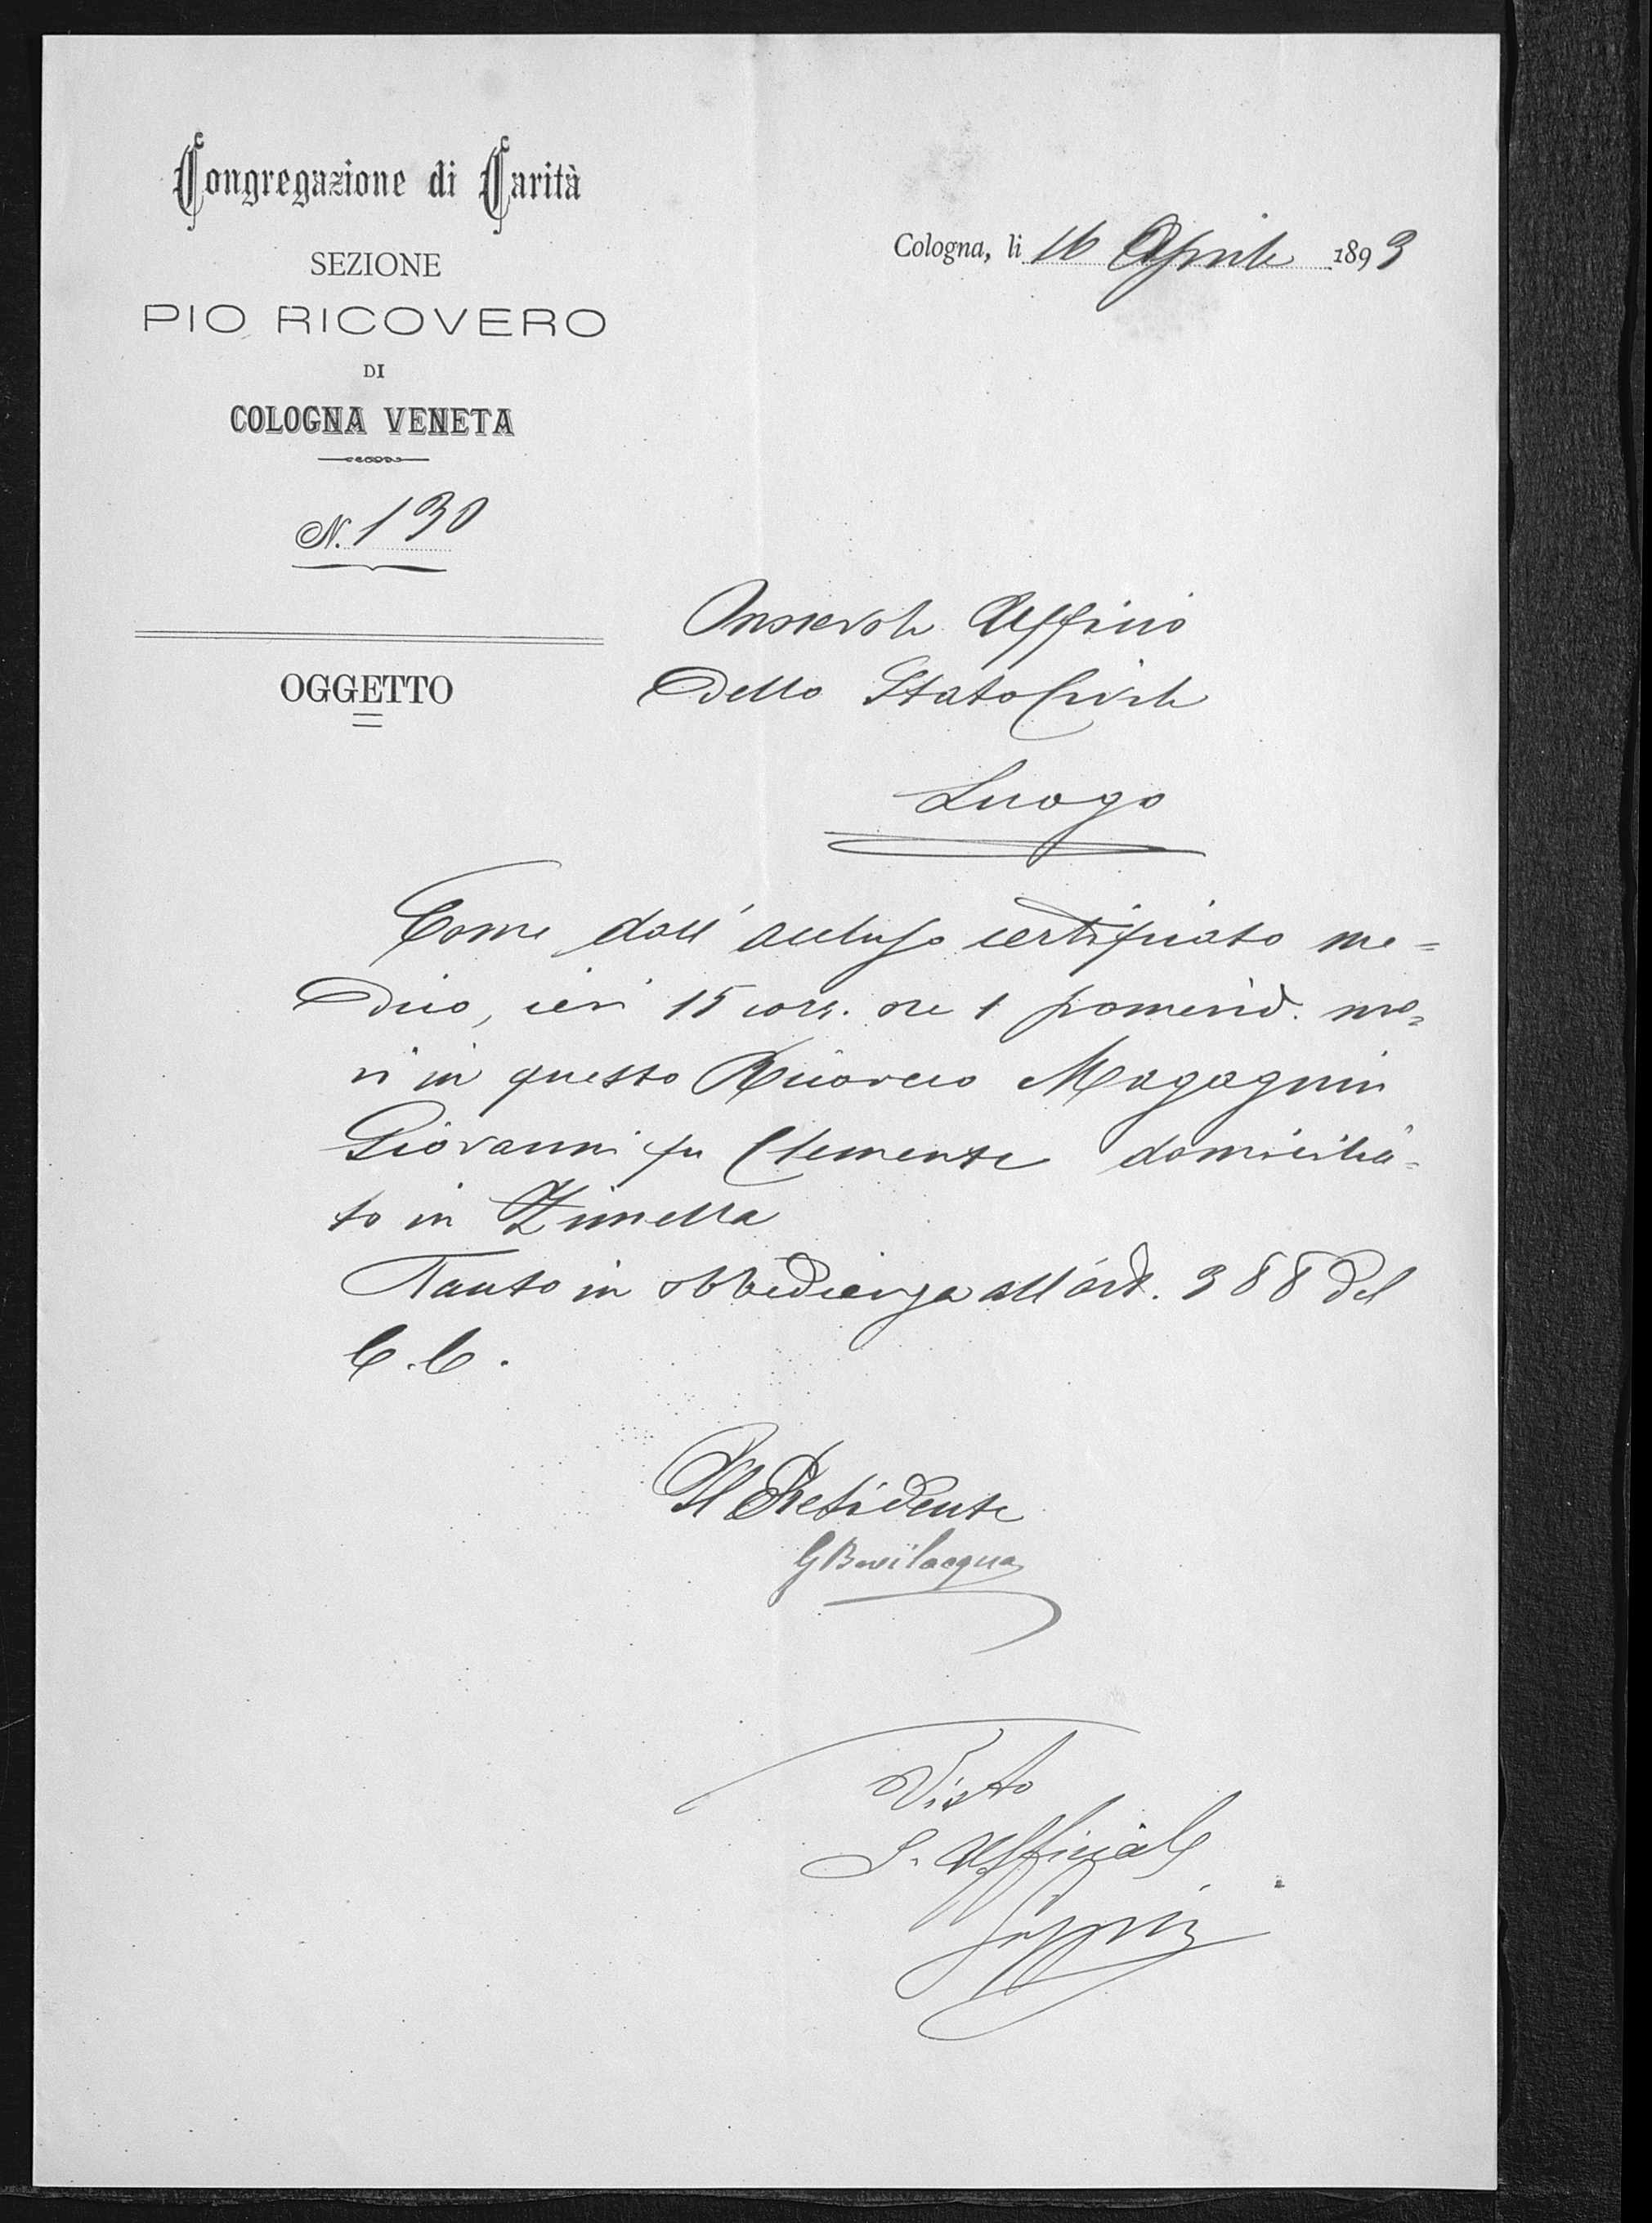 Congregazione di Carità
SEZIONE
PIO RICOVERO
DI
COLOGNA VENETA
N. 130
Cologna, li 16 Aprile 1893
OGGETTO
Onorevole Ufficio
dello Stato Civile
Luogo
Come dall' accluso certificato me=
dico, ieri 15 corr. ore 1 pomerid. mo=
rì in questo Ricovero Magagnin
Giovanni fu Clemente domicilia=
to in Zimella
Tanto in obbedienza all'art. 388 del
C. C.
Il Presidente
G Bevilacqua
Visto
L. Ufficiale